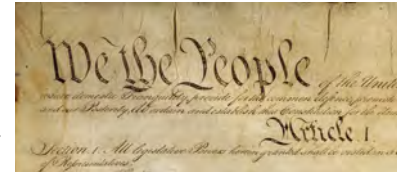 We the People of the United
insure domestic Tranquility, provide for the common defence, promote
and our Posterity, do ordain and establish this Constitution for the United
Article. I.
Section. 1. All legislative Powers herein granted shall be vested in a
of Representatives.